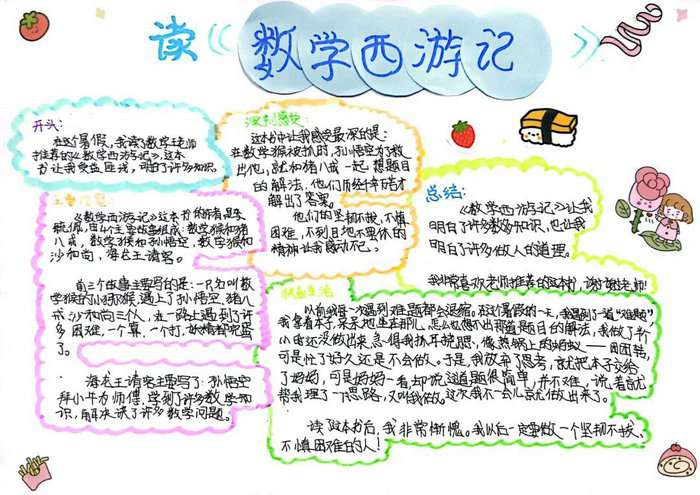 读《数学西游记》
开头:
在这个暑假，我读了数学老师
推荐的《数学西游记》，这本
书让我受益匪浅，明白了许多知识。
主要内容:
《数学西游记》这本书的作者是李
毓佩，由4个主要故事组成：数学猴和猪
八戒，数学猴和孙悟空，数学猴和
沙和尚，海龙王请客。
前三个故事主要写的是：一只名叫数
学猴的小猕猴，遇上了孙悟空、猪八
戒、沙和尚三个人，在一路上遇到了许
多困难，一个算，一个打，妖精都完蛋
了。
海龙王请客主要写了：孙悟空
拜小牛为师傅，学到了许多数学知
识，解决决了许多数学问题。
深刻感受:
这本书中让我感受最深的是：
在数学猴被抓时，孙悟空为了救
出他，就和猪八戒一起想题目
的解法，他们历经千辛才
解出了答案。
他们的坚韧不拔，不惧
困难，不到目地不罢休的
精神让我感动不已。
总结:
《数学西游记》让我
明白了许多数学知识，也让我
明白了许多做人的道理。
我非常喜欢老师推荐的这本书，谢谢老师！
联系生活
以前我每一次遇到难题都会退缩。在这个暑假的一天，我遇到了一道“难题”
我拿着本子，呆呆地坐在那儿，怎么也想不出那道题目的解法，我做了半个
小时还没做出来，急得我抓耳挠腮，像热锅上的蚂蚁——团团转，
可是忙了好久还是不会做。于是，我放弃了思考，就把本子给
了妈妈，可是妈妈一看，却说这道题很简单，并不难，说着就
帮我理了一下思路，又叫我做。这次我不一会儿就做出来了。
读了这本书后，我非常惭愧。我以后一定要做一个坚韧不拔、
不惧困难的人！